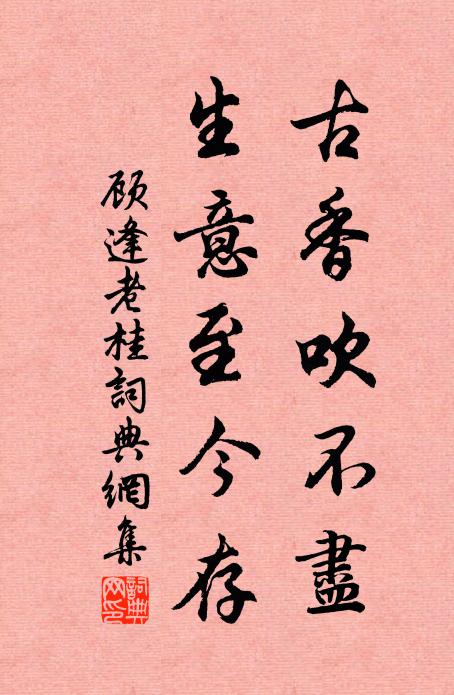 古香吹不盡
生意至今存
顧逢老桂詞典網集
詞典網印